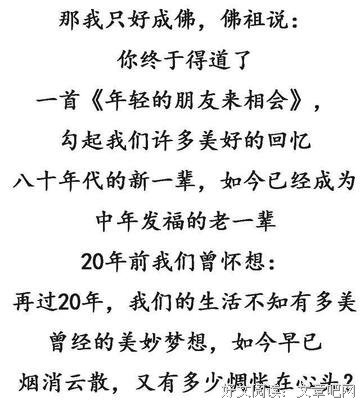 那我只好成佛，佛祖说：
你终于得道了
一首《年轻的朋友来相会》，
勾起我们许多美好的回忆
八十年代的新一辈，如今已经成为
中年发福的老一辈
20年前我们曾怀想：
再过20年，我们的生活不知有多美
曾经的美妙梦想，如今早已
烟消云散，又有多少惆怅在心头？
好文阅读：文章吧网